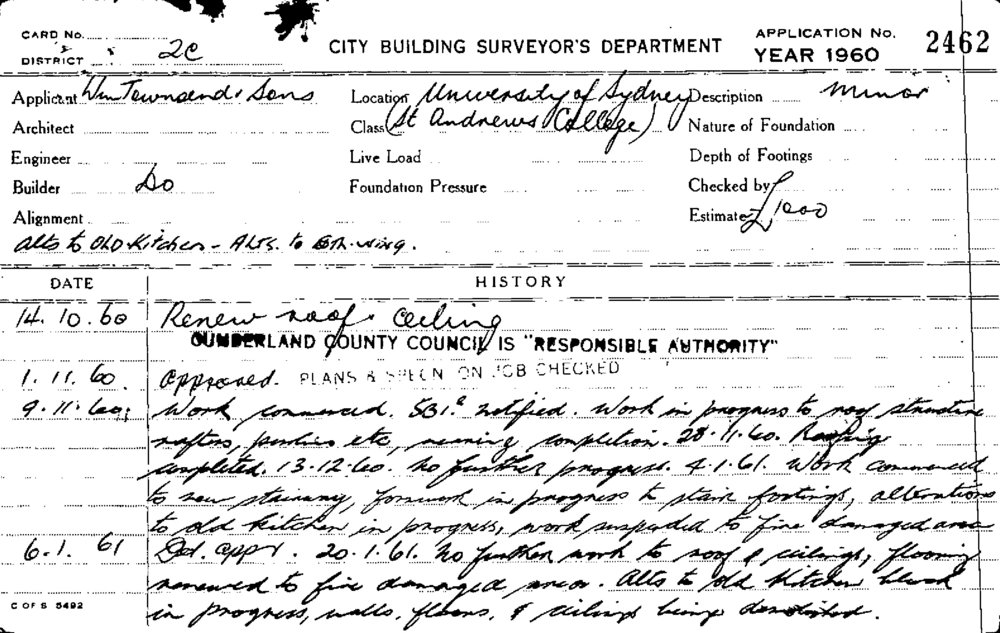 CARD No.
DISTRICT 2C
CITY BUILDING SURVEYOR'S DEPARTMENT
APPLICATION No. 2462
YEAR 1960
Applicant Wm Townsend & Sons Location University of Sydney Description minor
Architect Class (St Andrews College) Nature of Foundation
Engineer Live Load Depth of Footings
Builder Do Foundation Pressure Checked by
Alignment Estimate £1000
Alts to Old Kitchen - Alts. to Sth. wing.
DATE HISTORY
14.10.60 Renew roof & Ceiling
CUMBERLAND COUNTY COUNCIL IS "RESPONSIBLE AUTHORITY"
1.11.60. Approved. PLANS & SPECN ON JOB CHECKED
9.11.60; Work commenced. notified. Work in progress to roof structure
rafters, purlins etc, nearing completion. 28.11.60. Roofing
completed. 13.12.60. No further progress. 4.1.61. Work commenced
to new stairway, formwork in progress to stair footings, alterations
to old kitchen in progress, work suspended to fire damaged area
6.1.61 appr. 20.1.61. No further work to roof & ceilings, flooring
renewed to fire damaged area. Alts to old kitchen block
in progress, walls, floors, & ceilings being demolished.
C OF S 5492